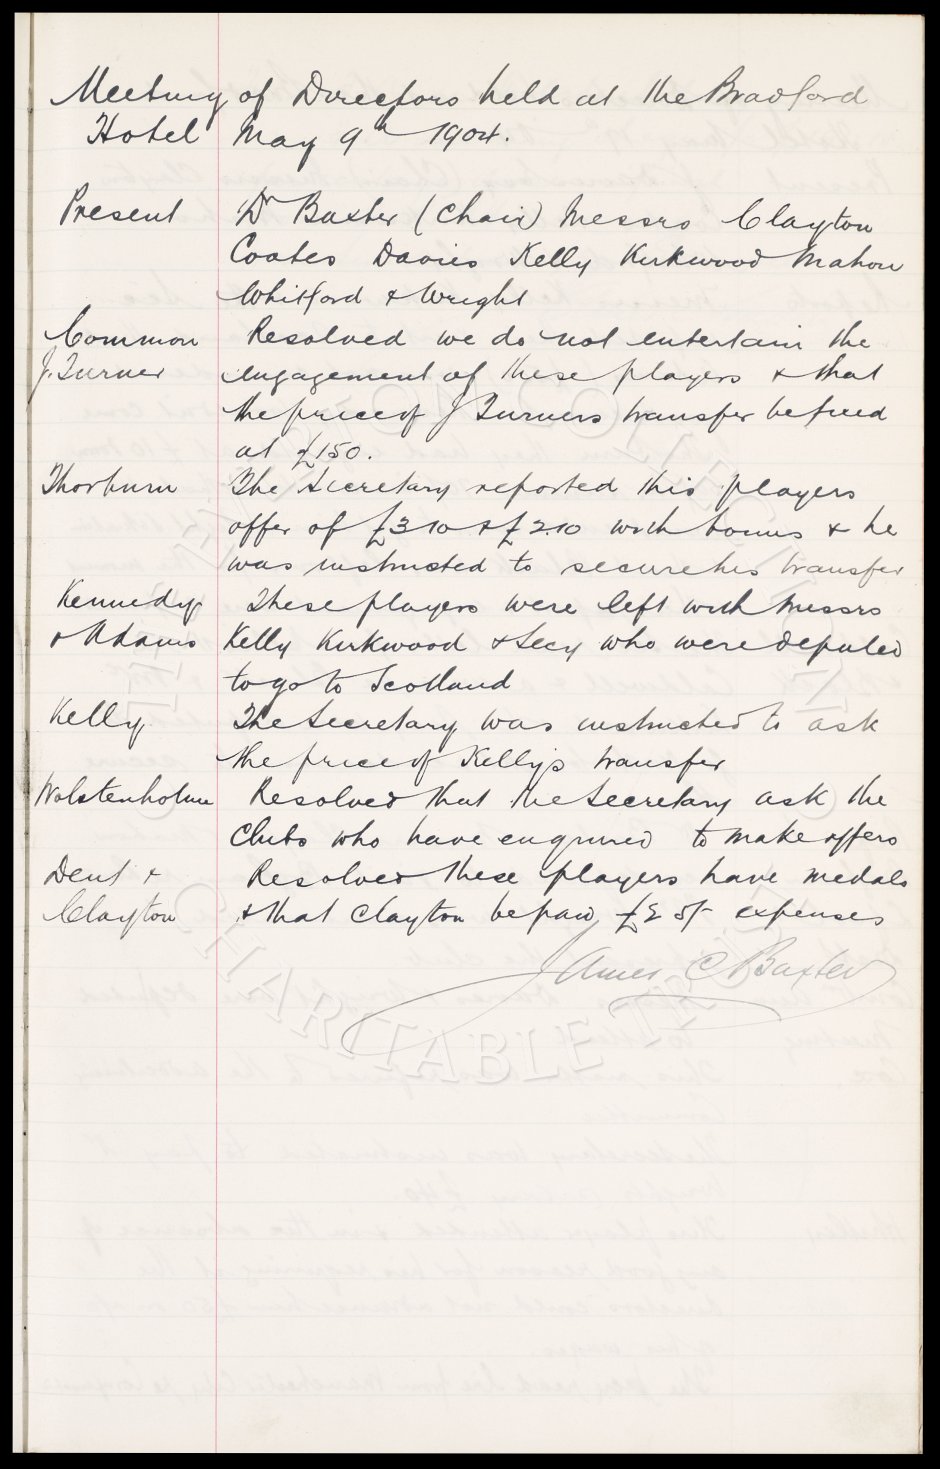 Meeting of Directors held at the Bradford
Hotel May 9th 1904.
Present Dr Baxter (Chair) Messrs Clayton
Coates Davies Kelly Kirkwood Mahon
Whitford & Wright
Common Resolved we do not entertain the
J. Turner engagement of these players & that
the price of J Turners transfer be fixed
at £150.
Thorburn The Secretary reported this players
offer of £3 10 & £2.10 with bonus & he
was instructed to secure his transfer
Kennedy These players were left with Messrs
& Adams Kelly Kirkwood & Secy who were deputed
to go to Scotland
Kelly The Secretary was instructed to ask
the price of Kellys transfer
Wolstenholme Resolved that the Secretary ask the
Clubs who have enquired to make offers
Dent & Resolved these players have medals
Clayton & that Clayton be paid £2 5/- expenses
James C Baxter
EVERTON COLLECTION
CHARITABLE TRUST